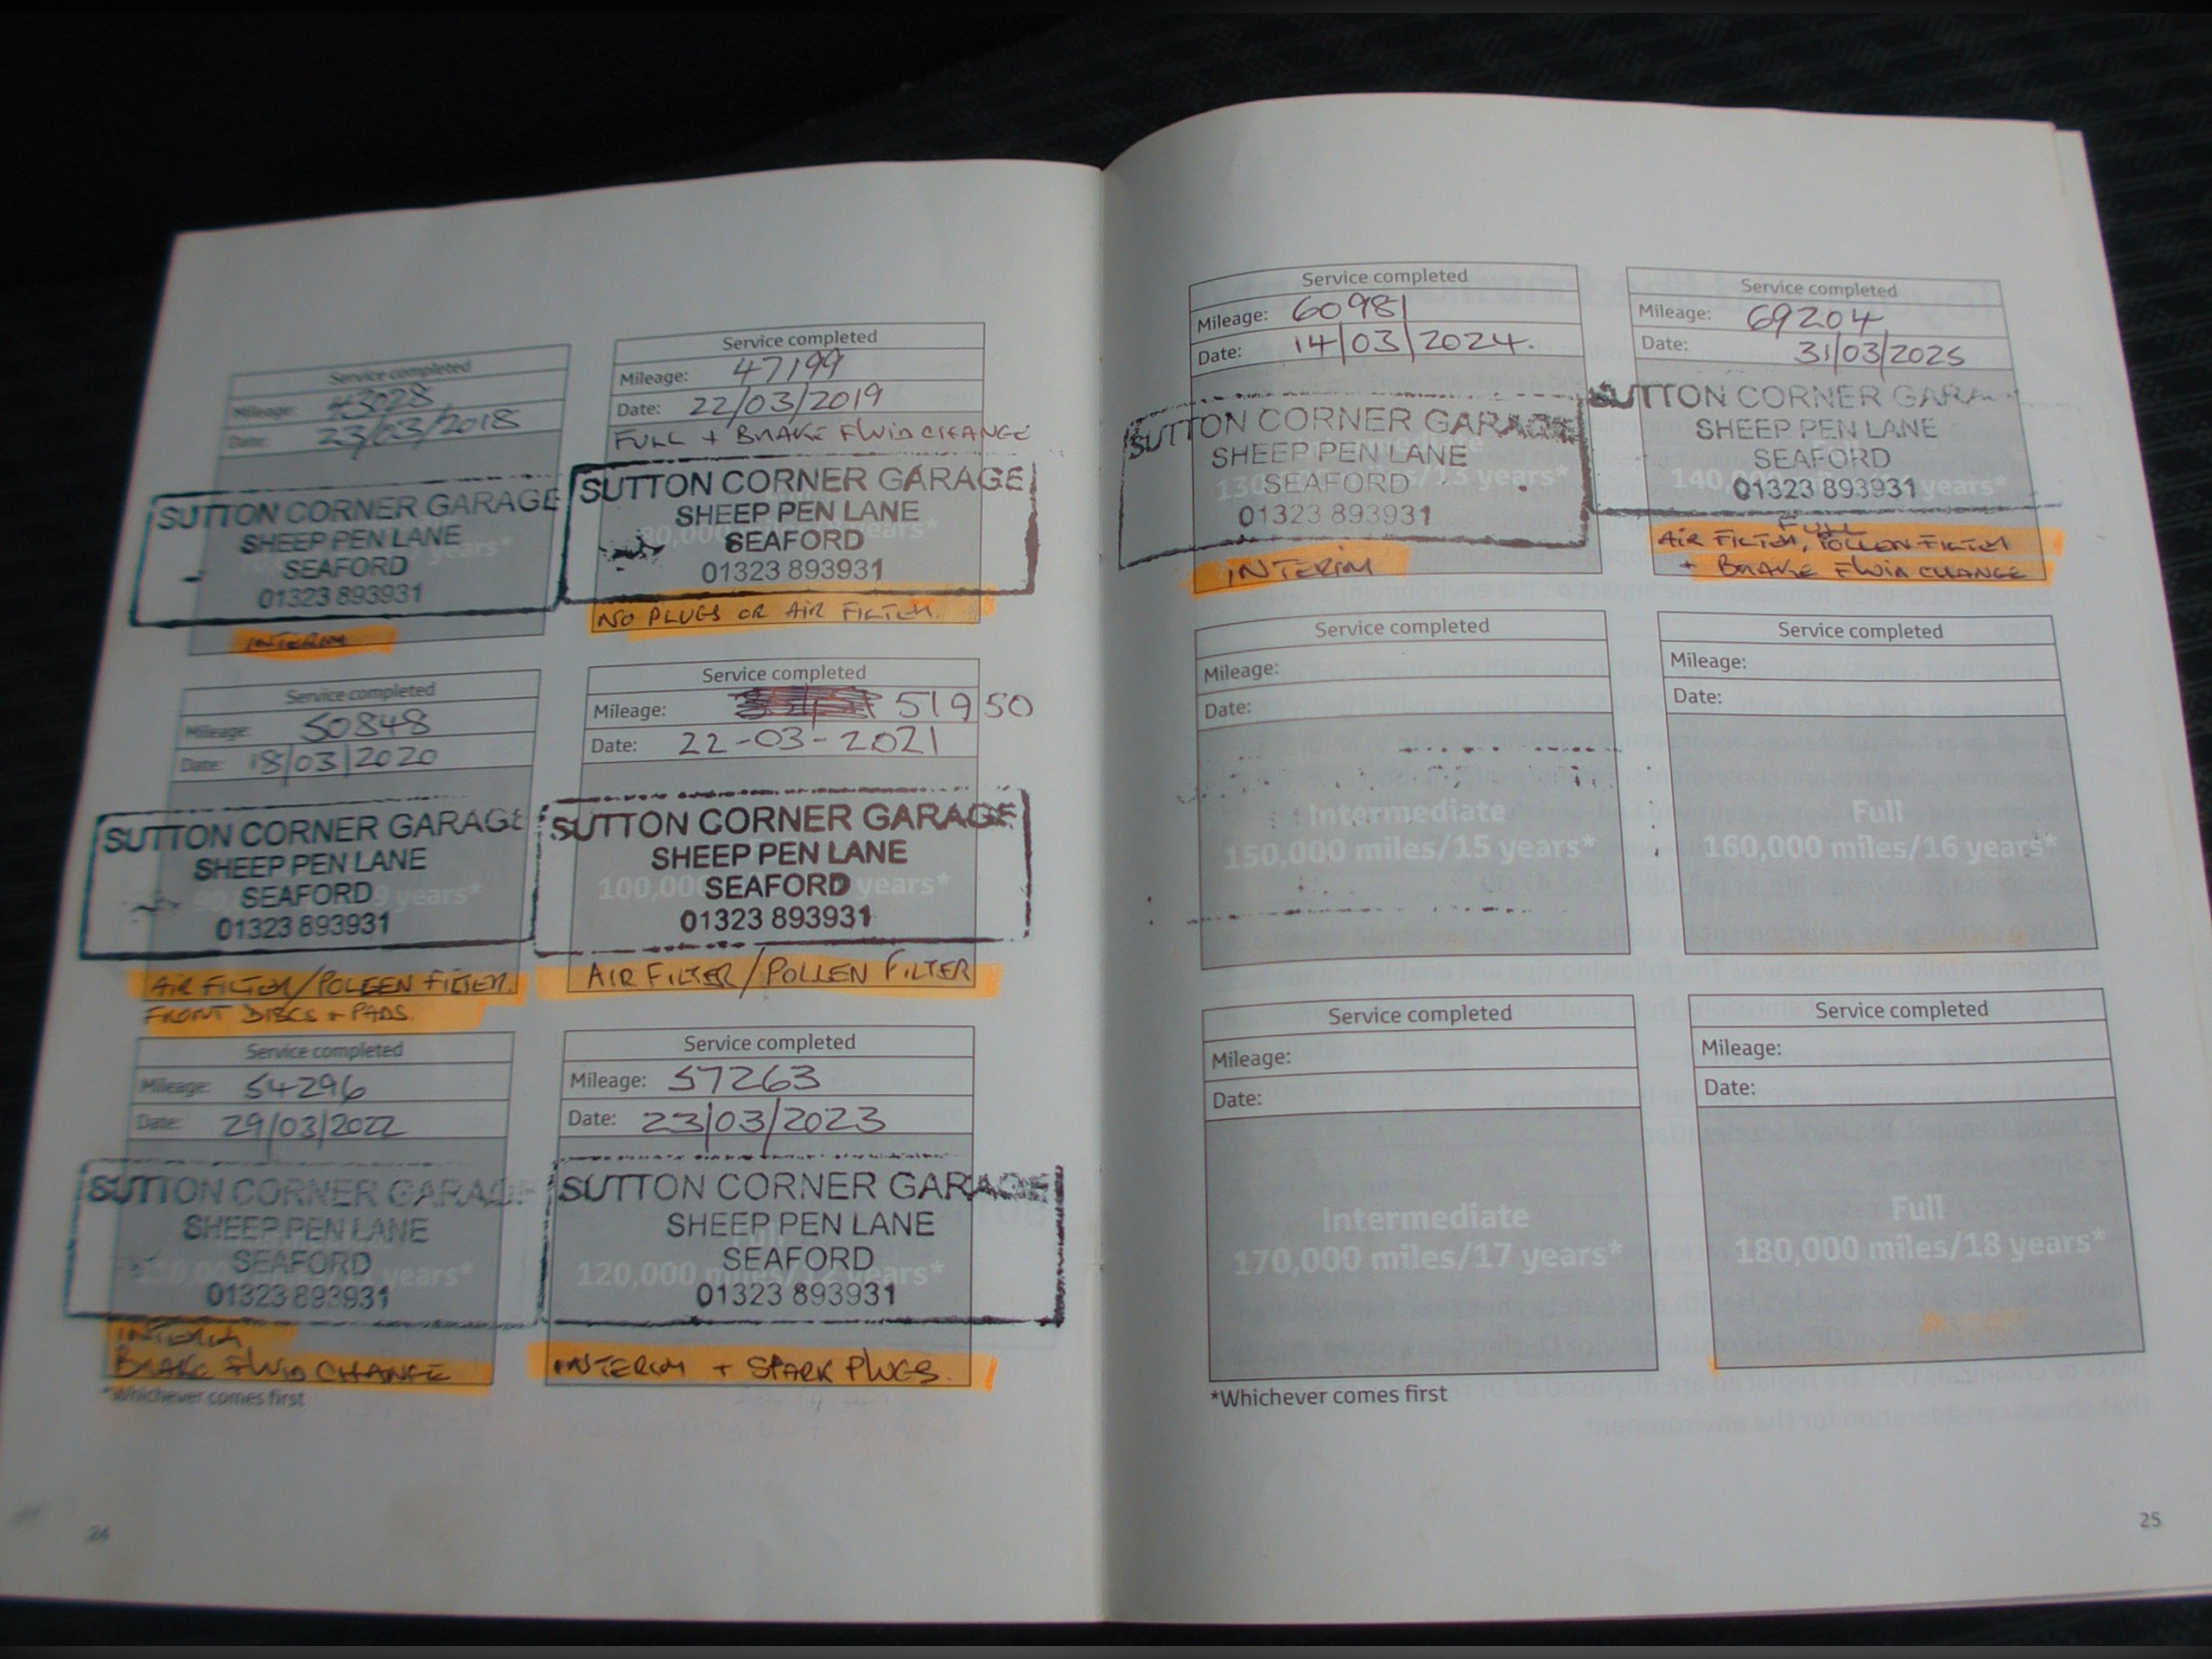 Service completed
Mileage: 43028
Date: 23/03/2018
SUTTON CORNER GARAGE
SHEEP PEN LANE
years*
SEAFORD
01323 893931
INTERIM
Service completed
Mileage: 47199
Date: 22/03/2019
FULL + BRAKE FLUID CHANGE
SUTTON CORNER GARAGE
SHEEP PEN LANE
years*
SEAFORD
01323 893931
NO PLUGS OR AIR FILTER.
Service completed
Mileage: 50848
Date: 18/03/2020
SUTTON CORNER GARAGE
SHEEP PEN LANE
9 years*
SEAFORD
01323 893931
AIR FILTER/POLLEN FILTER.
FRONT DISCS + PADS.
Service completed
Mileage: 51950
Date: 22-03-2021
SUTTON CORNER GARAGE
SHEEP PEN LANE
100,000 years*
SEAFORD
01323 893931
AIR FILTER/POLLEN FILTER
Service completed
Mileage: 54296
Date: 29/03/2022
SUTTON CORNER GARAGE
SHEEP PEN LANE
SEAFORD
years*
01323 893931
INTERIM
BRAKE FLUID CHANGE
Service completed
Mileage: 57263
Date: 23/03/2023
SUTTON CORNER GARAGE
SHEEP PEN LANE
Full
SEAFORD
120,000 miles/12 years*
01323 893931
INTERIM + SPARK PLUGS.
*Whichever comes first
24
Service completed
Mileage: 60981
Date: 14/03/2024.
SUTTON CORNER GARAGE
Intermediate
SHEEP PEN LANE
130,000 miles/13 years*
SEAFORD
01323 893931
INTERIM
Service completed
Mileage: 69204
Date: 31/03/2025
SUTTON CORNER GARA
SHEEP PEN LANE
Full
SEAFORD
140,000 years*
01323 893931
FULL
AIR FILTER, POLLEN FILTER
+ BRAKE FLUID CHANGE
Service completed
Mileage:
Date:
Intermediate
150,000 miles/15 years*
Service completed
Mileage:
Date:
Full
160,000 miles/16 years*
Service completed
Mileage:
Date:
Intermediate
170,000 miles/17 years*
Service completed
Mileage:
Date:
Full
180,000 miles/18 years*
*Whichever comes first
25